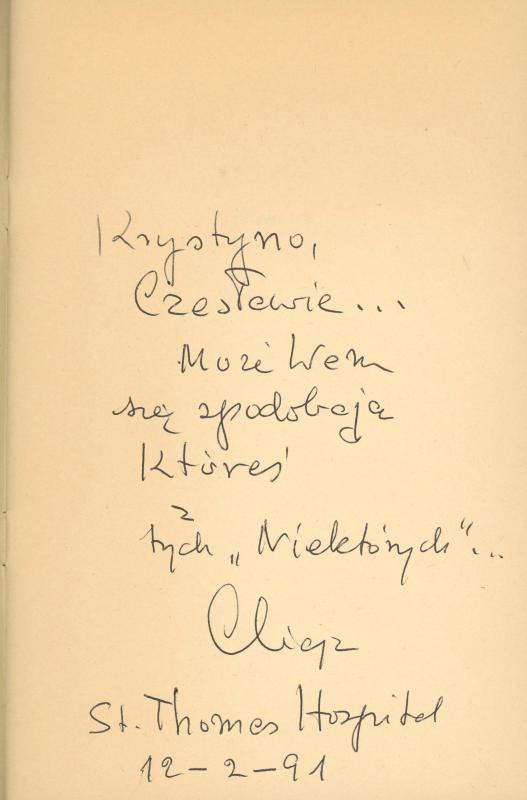 Krystyno,
Czesławie...
Może Wam
się spodobają
Któreś
z
tych „Niektórych"...
St. Thomas Hospital
12-2-91